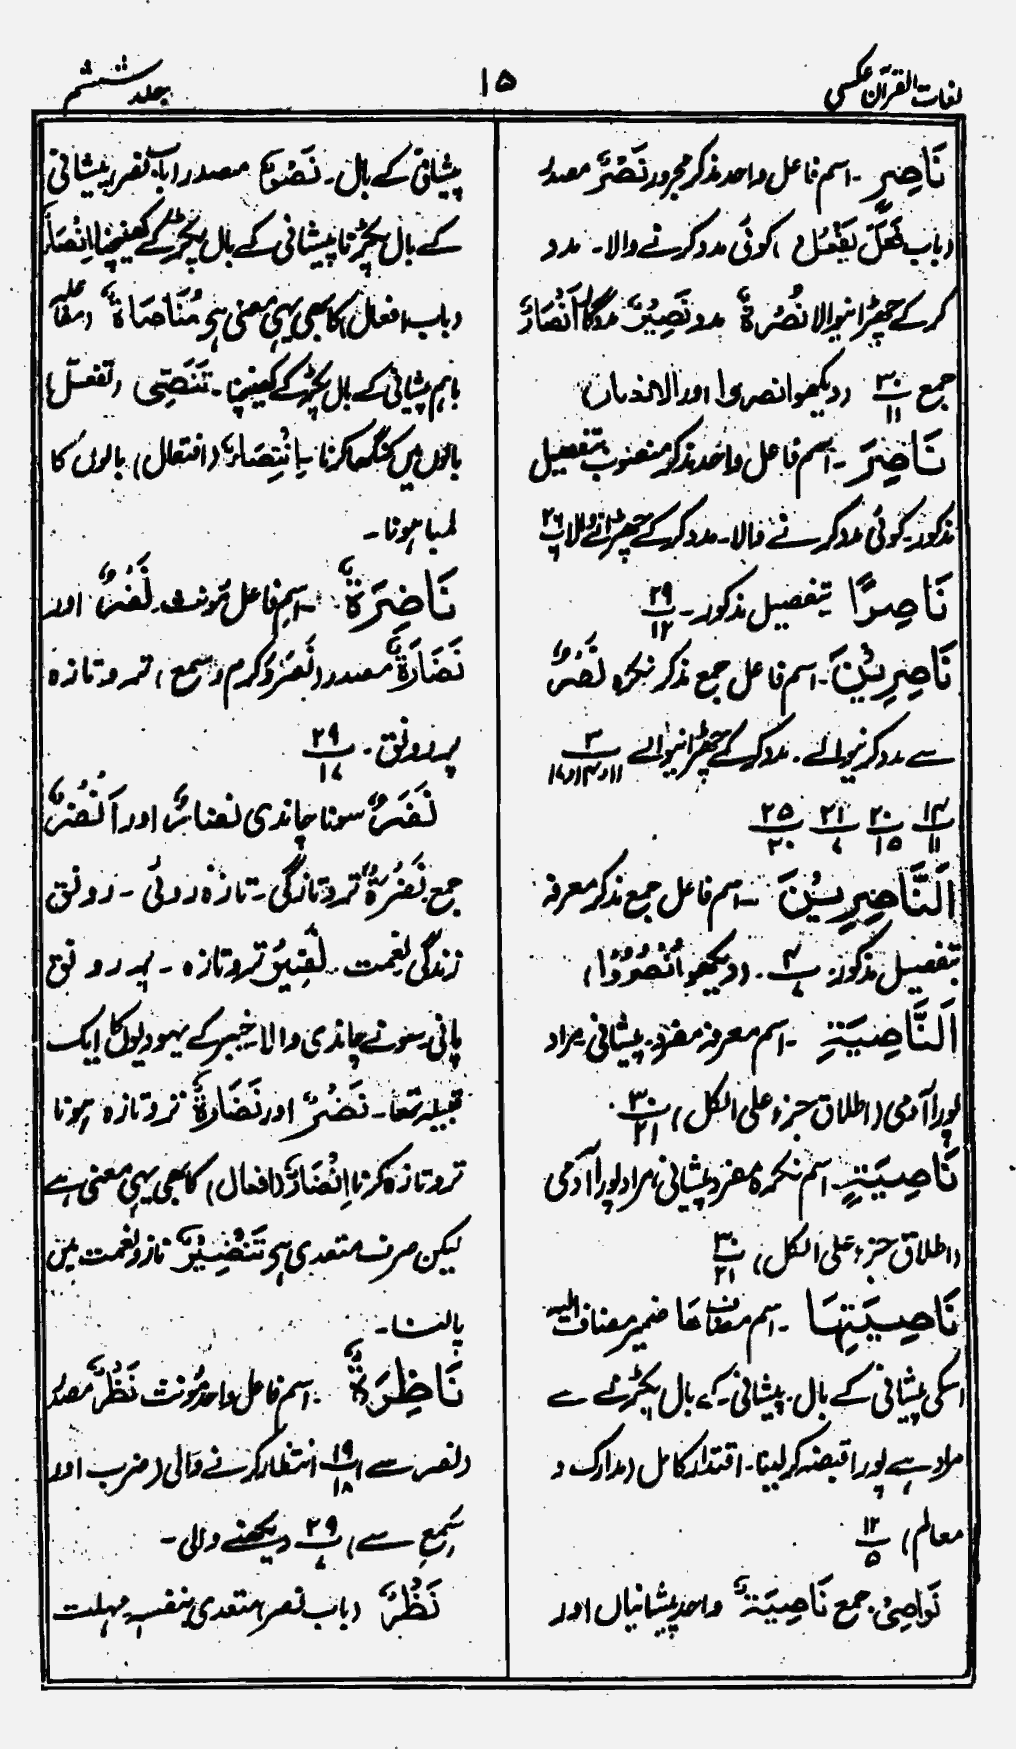 لغات القرآن عکسی
۱۵
جلد ششم
نَاصِرٍ ۔ اسم فاعل واحد مذکر مجرور نَصْرٌ مصدر
(باب فَعَلَ یَفْعُلُ) کوئی مدد کرنے والا۔ مدد
کر کے چھڑانیوالا نُصْرَۃٌ مدد نَصِیْرٌ مددگار اَنْصَارٌ
جمع ۳۰/۱۱ (دیکھو انصروا اور الانصار)
نَاصِرَ ۔ اسم فاعل واحد مذکر منصوب بتفصیل
مذکور۔ کوئی مدد کرنے والا۔ مدد کر کے چھڑانے والا ۲۶/۶
نَاصِرًا بتفصیل مذکور۔ ۲۹/۱۲
نَاصِرِیْنَ ۔ اسم فاعل جمع مذکر نکرہ نَصْرٌ
سے مدد کرنیوالے۔ مدد کر کے چھڑانیوالے ۳/۱۱و۱۳و۱۷
۱۴/۱۱ ۲۰/۱۵ ۲۱/۷ ۲۵/۲۰
اَلنَّاصِرِیْنَ ۔ اسم فاعل جمع مذکر معرفہ
بتفصیل مذکور۔ ۴/۷ ۔ (دیکھو اُنْصُرُوْا)
اَلنَّاصِیَۃِ ۔ اسم معرفہ مفرد۔ پیشانی مراد
پورا آدمی (اطلاق جزء علی الکل) ۳۰/۲۱ ۔
نَاصِیَۃٍ اسم نکرہ مفرد پیشانی، مراد پورا آدمی
(اطلاق جزء علی الکل) ۳۰/۲۱
نَاصِیَتِہَا ۔ اسم مضاف ھا ضمیر مضاف الیہ
اسکی پیشانی کے بال۔ پیشانی کے بال پکڑنے سے
مراد ہے پورا قبضہ کر لینا۔ اقتدار کامل (مدارک و
معالم) ۱۲/۵
نَوَاصِیْ۔ جمع نَاصِیَۃٌ واحد پیشانیاں اور
پیشانی کے بال۔ نَصْوٌ مصدر (باب نصر) پیشانی
کے بال پکڑنا پیشانی کے بال پکڑ کے کھینچنا اِنْصَاءٌ
(باب افعال) کا بھی یہی معنی ہے مُنَاصَاۃٌ (مفاعلہ)
باہم پیشانی کے بال پکڑ کے کھینچنا۔ تَنَصِّی (تفعل)
بالوں میں کنگھا کرنا۔ اِنْتِصَاءٌ (افتعال) بالوں کا
لمبا ہونا۔
نَاضِرَۃٌ ۔ اسم فاعل مؤنث۔ نَضْرٌ اور
نَضَارَۃٌ مصدر (نَصَرَ و کرم و سمع) تر و تازہ
پر رونق۔ ۲۹/۱۷
نَضْرٌ سونا چاندی نضارٌ اور اَنْضُرٌ
جمع نَضْرَۃٌ تر و تازگی۔ تازہ روئی۔ رونق
زندگی نعمت۔ نَضِیْرٌ تر و تازہ ۔ پر رونق
پانی۔ سونے چاندی والا۔ خیبر کے یہودیوں کا ایک
قبیلہ تھا۔ نَضْرٌ اور نَضَارَۃٌ تر و تازہ ہونا
تر و تازہ کرنا اِنْضَارٌ (افعال) کا بھی یہی معنی ہے
لیکن صرف متعدی ہے تَنْضِیْرٌ ناز و نعمت میں
پالنا۔
نَاظِرَۃٌ ۔ اسم فاعل واحد مؤنث نَظْرٌ مصدر
(نصر سے) ۱۹/۱۸ انتظار کرنے والی (ضرب اور
سَمِعَ سے) ۲۹/۷ دیکھنے والی۔
نَظْرٌ (باب نصر) متعدی بنفسہ مہلت